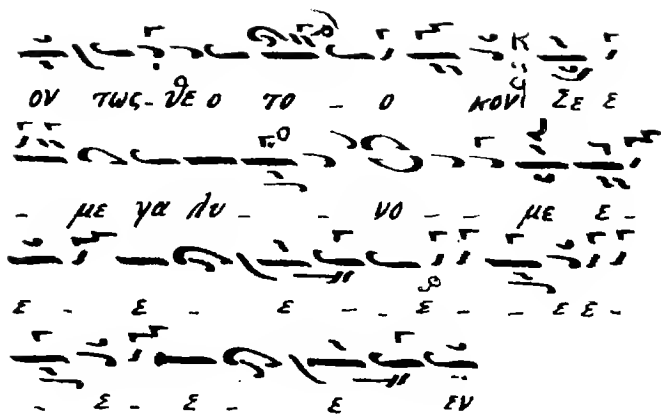 ον τως- θε ο το - ο κον Σε ε
- με γα λυ - - νο - - με ε -
ε - ε - ε - - ε - - ε ε -
- ε - ε - ε εν